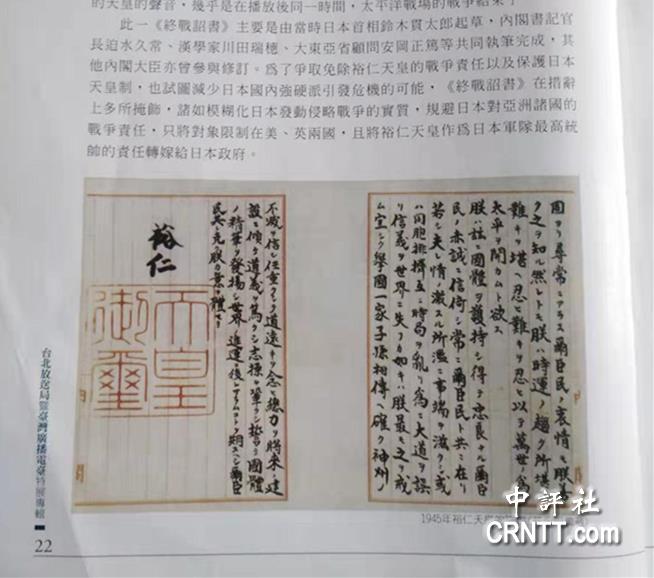 的天皇的聲音，幾乎是在播放後同一時間，太平洋戰場的戰爭結束了
此一《終戰詔書》主要是由當時日本首相鈴木貫太郎起草，內閣書記官
長迫水久常、漢學家川田瑞穗、大東亞省顧問安岡正篤等共同執筆完成，其
他內閣大臣亦曾參與修訂。爲了爭取免除裕仁天皇的戰爭責任以及保護日本
天皇制，也試圖減少日本國內強硬派引發危機的可能，《終戰詔書》在措辭
上多所掩飾，諸如模糊化日本發動侵略戰爭的實質，規避日本對亞洲諸國的
戰爭責任，只將對象限制在美、英兩國，且將裕仁天皇作爲日本軍隊最高統
帥的責任轉嫁給日本政府。
固ヨリ尋常ニアラス爾臣民ノ衷情モ朕善
ク之ヲ知ル然レトモ朕ハ時運ノ趨ク所堪ヘ
難キヲ堪ヘ忍ヒ難キヲ忍ヒ以テ萬世ノ爲
太平ヲ開カムト欲ス
朕ハ茲ニ國體ヲ護持シ得テ忠良ナル爾臣
民ノ赤誠ニ信倚シ常ニ爾臣民ト共ニ在リ
若シ夫レ情ノ激スル所濫ニ事端ヲ滋クシ或
ハ同胞排擠互ニ時局ヲ亂リ爲ニ大道ヲ誤
リ信義ヲ世界ニ失フカ如キハ朕最モ之ヲ戒
ム宜シク擧國一家子孫相傳ヘ確ク神州ノ
不滅ヲ信シ任重クシテ道遠キヲ念ヒ總力ヲ將來ノ建
設ニ傾ケ道義ヲ篤クシ志操ヲ鞏クシ誓テ國體
ノ精華ヲ發揚シ世界ノ進運ニ後レサラムコトヲ期スヘシ爾臣
民其レ克ク朕カ意ヲ體セヨ
裕仁
天皇御璽
1945年裕仁天皇
台北放送局暨臺灣廣播電臺特展專輯
22
中評社
CRNTT.com